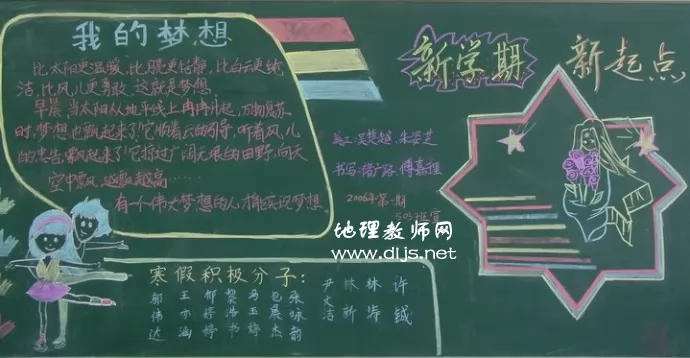 我的梦想
比太阳更温暖,比月亮更恬静,比白云更纯
洁,比风儿更勇敢,这就是梦想。
早晨,当太阳从地平线上冉冉升起,万物复苏
时,梦想也飘起来了!它顺着云的引导,听着风儿
的忠告,飘起来了!它掠过广阔无垠的田野,向天
空中飘,越飘越高……
有一个伟大梦想的人,才能实现梦想。
新学期
新起点
2006年第一期
503班宣
地理教师网
www.dljs.net
寒假积极分子:
邬 王 郁 黎 冯 包 张 尹 林 林 许
伟 亦 婷 浩 玉 晨 咏 文
达 涵 婷 书 婷 杰 韵 洁